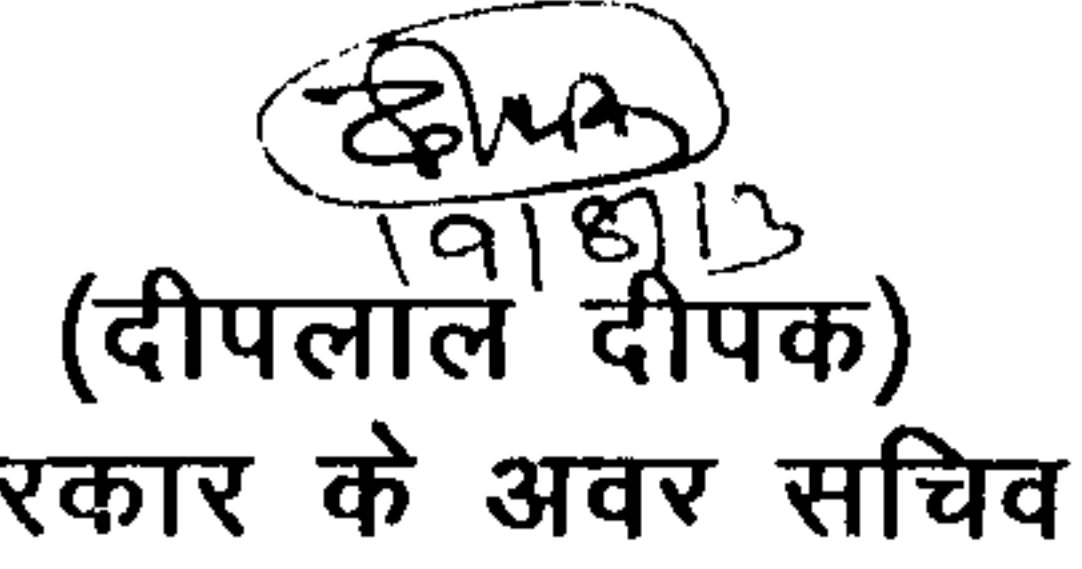 दीपक
19/8/13
(दीपलाल दीपक)
रकार के अवर सचिव